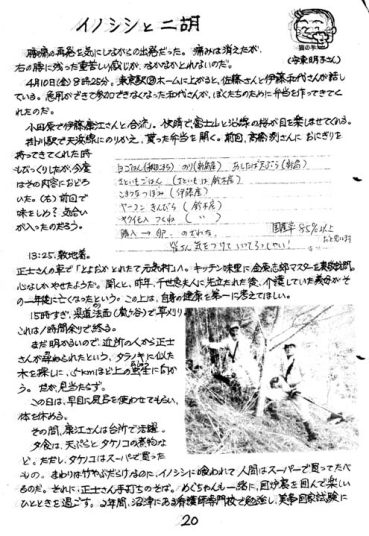 イノシシと二胡
(守東明子さん)
腰痛の再発を気にしながらの出発だった。痛みは消えたが、
右の膝に残った重苦しい感じが、なかなかとれないのだ。
4月10日(金)8時25分。東京駅 ホームに上がると、佐藤さんと伊藤和代さんが話し
ている。急用ができて参加できなくなった和代さんが、ぼくたちのために弁当を作ってきてく
れたのだ。
小田原で伊藤康江さんと合流。快晴で、富士山と沿線の桜が目を楽しませてくれる。
掛川駅で天浜線にのりかえ、貰った弁当を開く。前回、高 さんに おにぎりを
持ってきてくれた時
もびっくりしたが、今度
はその内容におどろ
いた。(右)前回で
味をしめ?気合い
が入ったのだろう。
白ごはん のり あしたば天ぷら
さといもごはん (さといもは 鈴木 )
(伊藤 )
ピーマン きんぴら (鈴木 )
つくね (〃)
購入→卵、
国産率85%以上
皆さん気をつけていってらっしゃい!
13:25. 敷地着。
正士さんの車で「とよおかとれたて元気村」へ。キッチン味里に金 志郎マスターを
心なしかやせたようだ。聞くと、昨年、千世恵夫人に先立たれた後、介護していた義母がそ
の一年後に亡くなったという。この上は、自身の健康を第一に考えてほしい。
15時すぎ、県道法面(敷ヶ谷)で草刈り。
これは1時間余りで終る。
まだ明かるいので、近所の人から正士
さんが尋ねられたという、タラノキに似た
木を探しに、.5kmほど上の 生に向か
う。だが、見当たらず。
この日は、早目に風呂を使わせてもらい、
体を休める。
その間、康江さんは台所で活躍。
夕食は、天ぷらとタケノコの煮物な
ど。ただし、タケノコはスーパーで買った
もの。まわりは竹やぶだらけなのに、イノシシに喰われて人間はスーパーで買ってたべ
るのだ。それに、正士さん手打ちのそば。めぐちゃんも一緒に、囲炉裏を囲んで楽しい
ひとときを過ごす。2年間、沼津にある看護師専門校で勉強し、 国家試験に
20